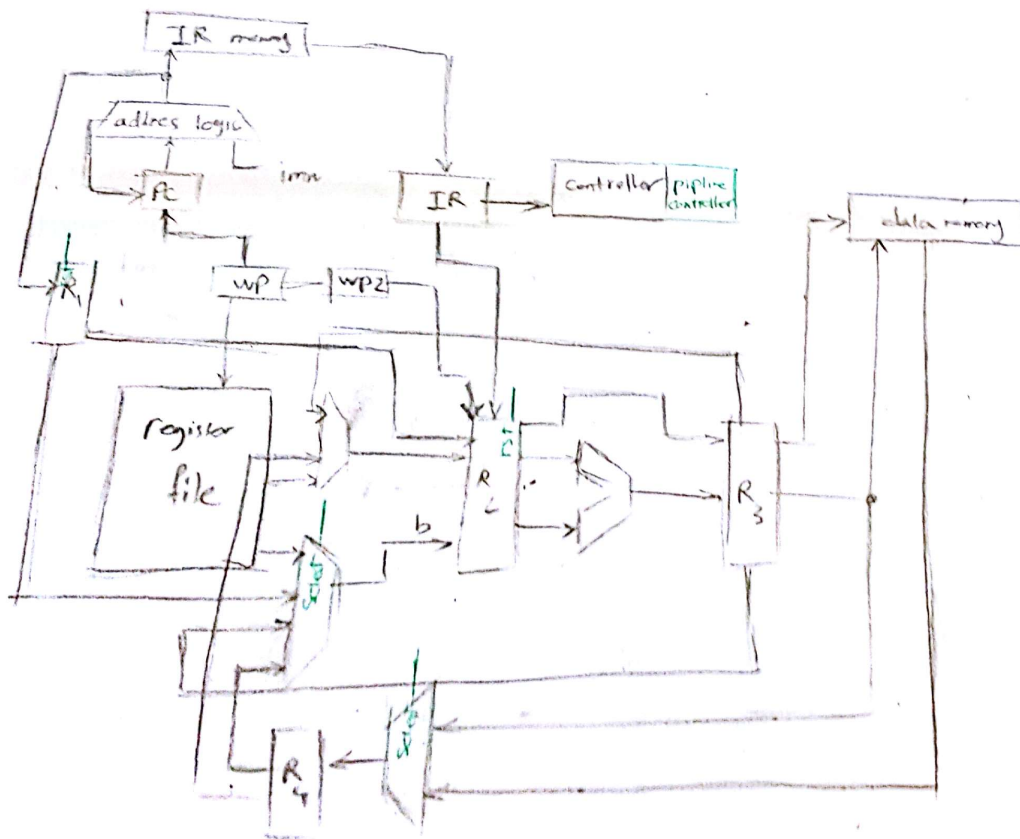 IR memory
addres logic
imm
PC
IR
controller
pipline
controller
data memory
R1
WP
WP2
register
file
R2
R3
b
R4